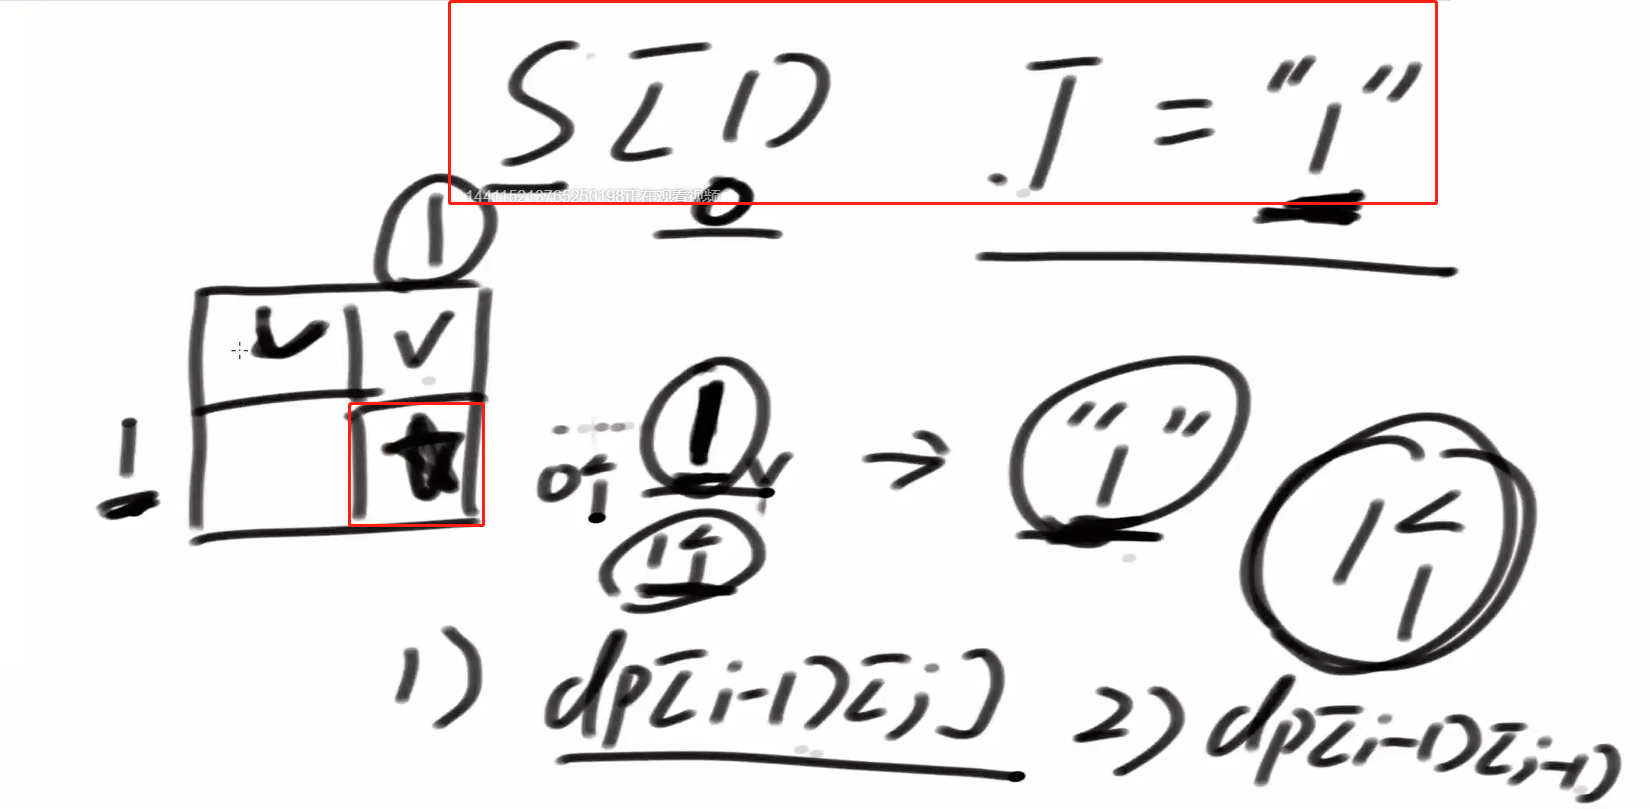 S[1] T = "1"
144115213765250198正在观看视频
0
1
1
0 1 1 → "1"
1 1 1 1
1) dp[i-1][j] 2) dp[i-1][j-1]